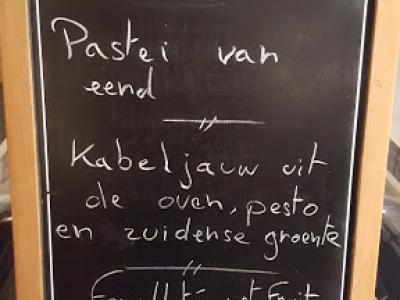 Pastei van
eend
Kabeljauw uit
de oven, pesto
en zuidense groente